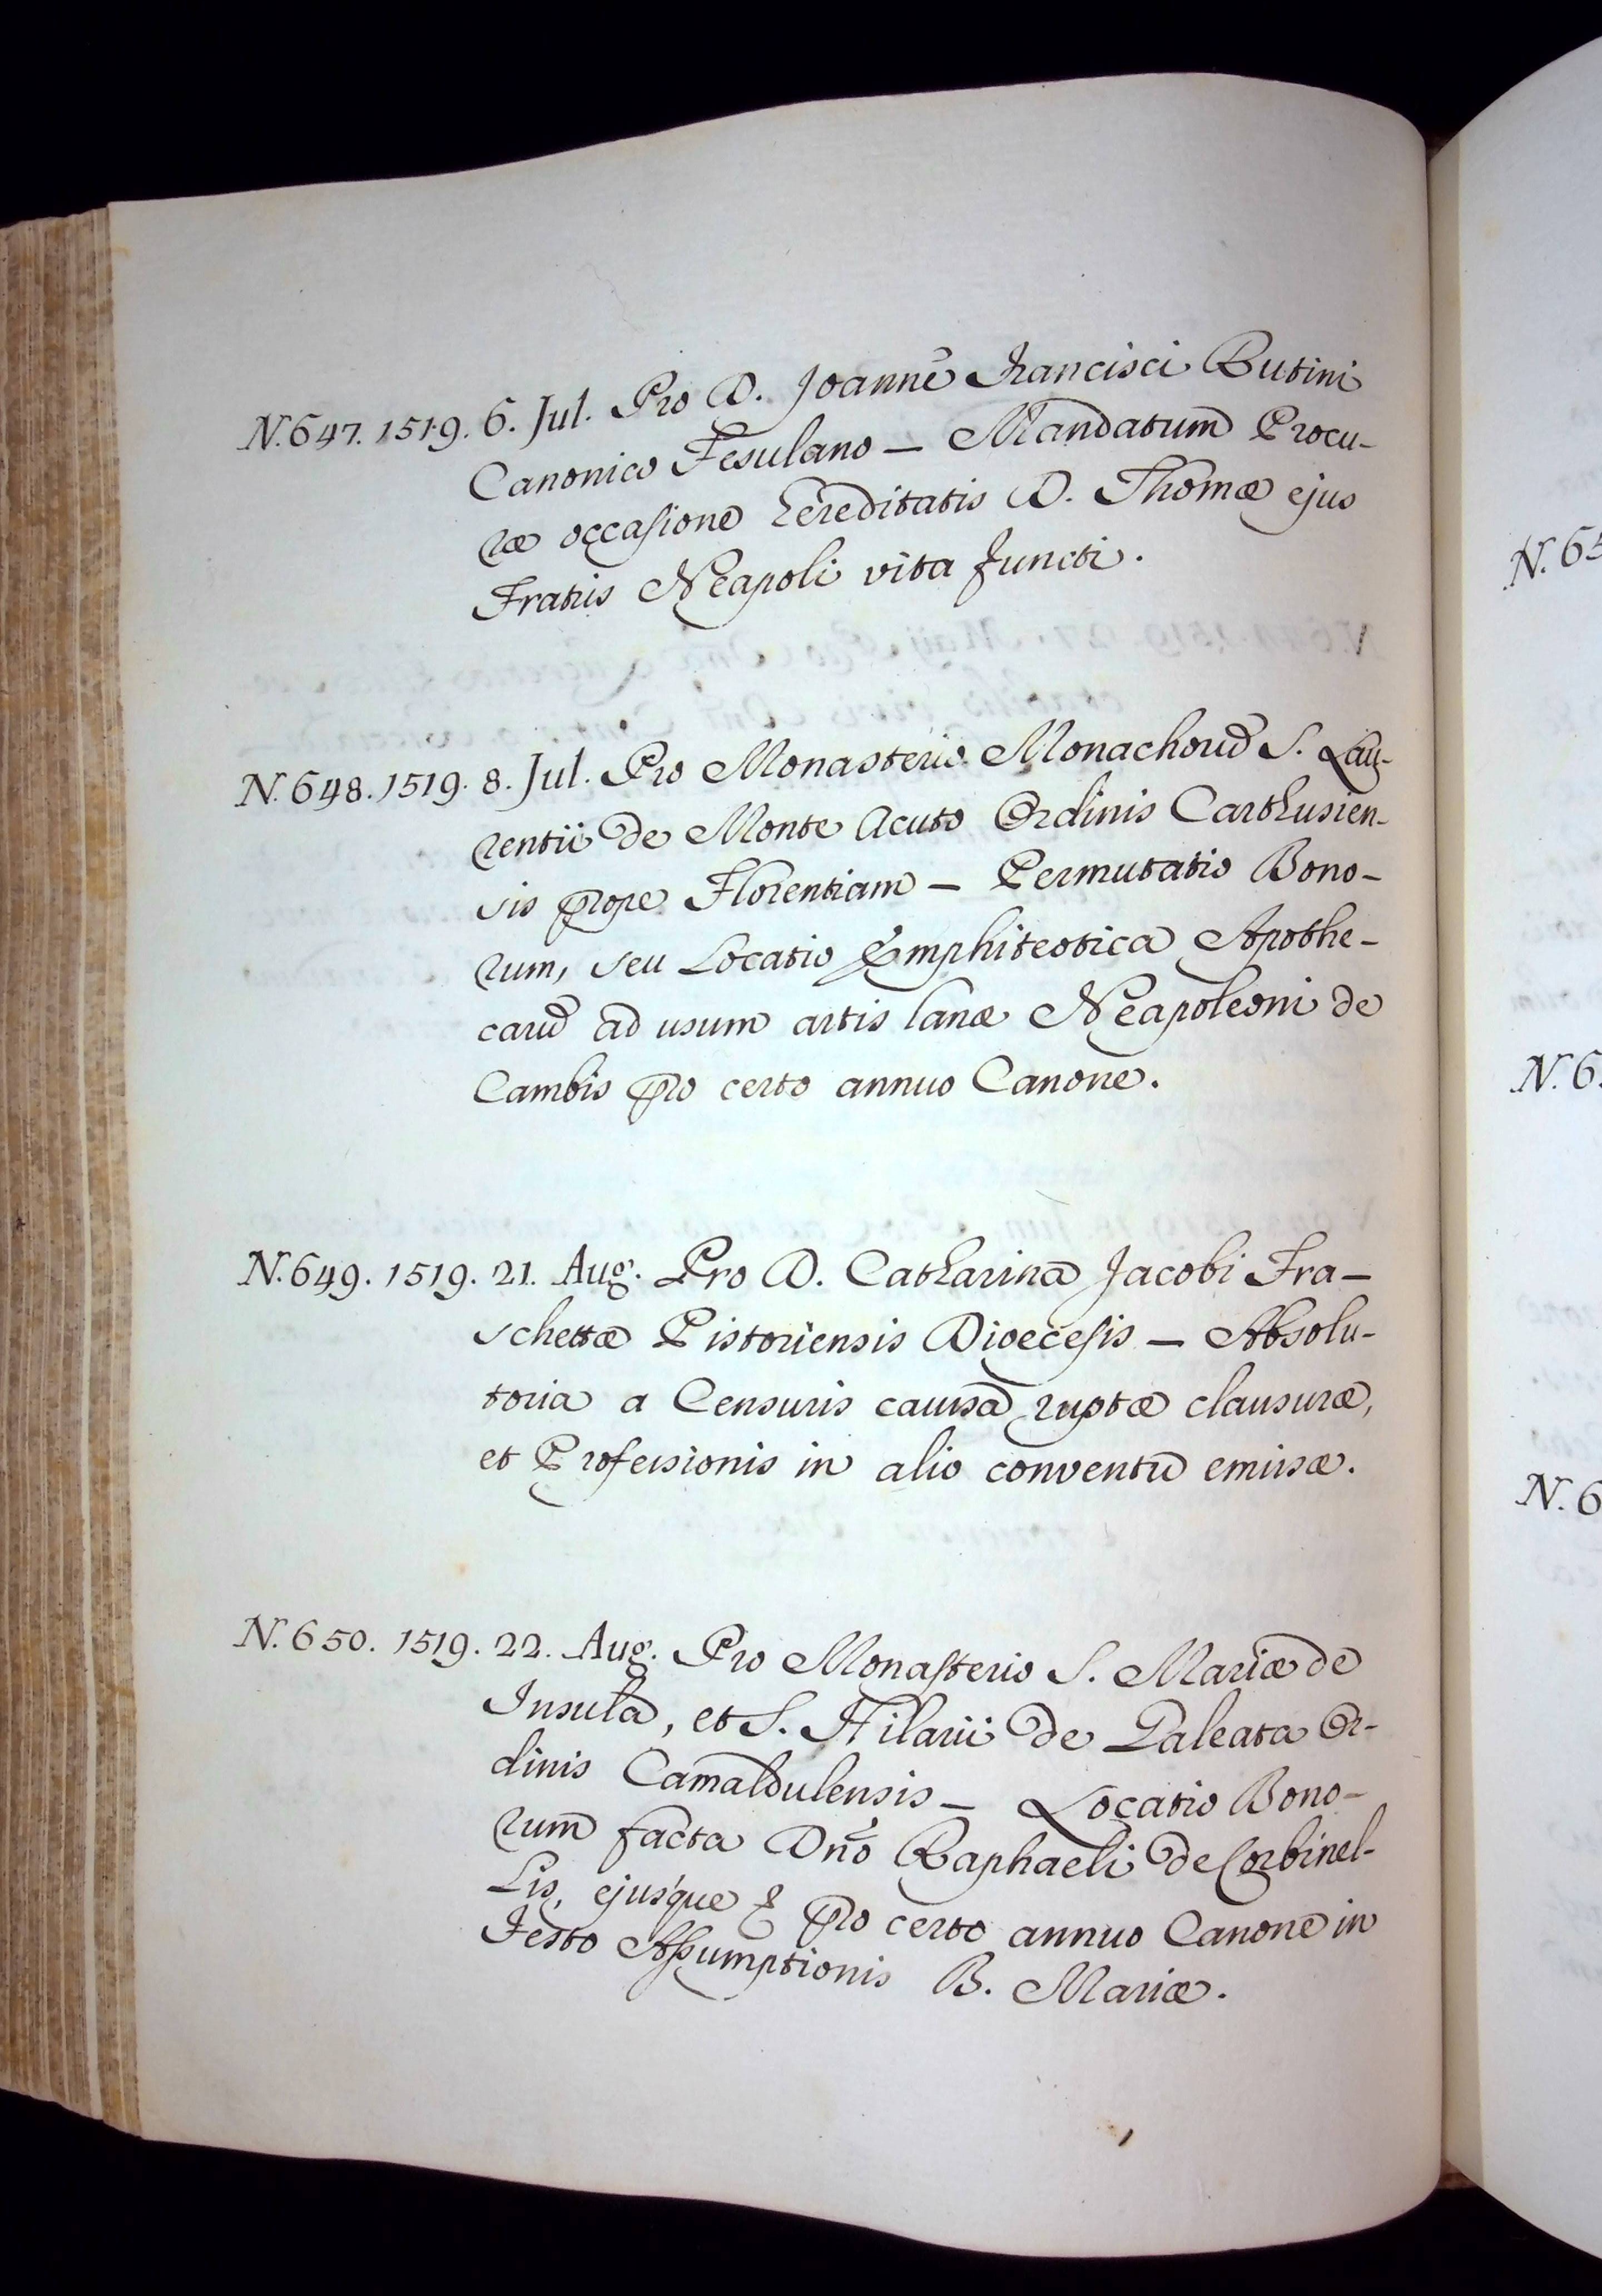 N. 647. 1519. 6. Jul. Pro D. Joanne Francisci Butini
Canonico Fesulano — Mandatum Procu-
ræ occasione hereditatis D. Thomæ ejus
Fratris Neapoli vita functi.
N. 648. 1519. 8. Jul. Pro Monasterio Monachorū S. Lau-
rentii de Monte Acuto Ordinis Carthusien-
sis prope Florentiam — Permutatio Bono-
rum, seu Locatio Emphiteotica Apothe-
carū ad usum artis lanæ Neapoleoni de
Cambis pro certo annuo Canone.
N. 649. 1519. 21. Aug. Pro D. Catharina Jacobi Fra-
schettæ Pistoriensis Dioecesis — Absolu-
toria a Censuris causa ruptæ clausuræ,
et Professionis in alio conventu emissæ.
N. 650. 1519. 22. Aug. Pro Monasterio S. Mariæ de
Insula, et S. Hilarii de Galeata Or-
dinis Camaldulensis — Locatio Bono-
rum facta Dño Raphaeli de Corbinel-
lis, ejusque & pro certo annuo Canone in
Festo Assumptionis B. Mariæ.
N. 65
N. 6
N. 6